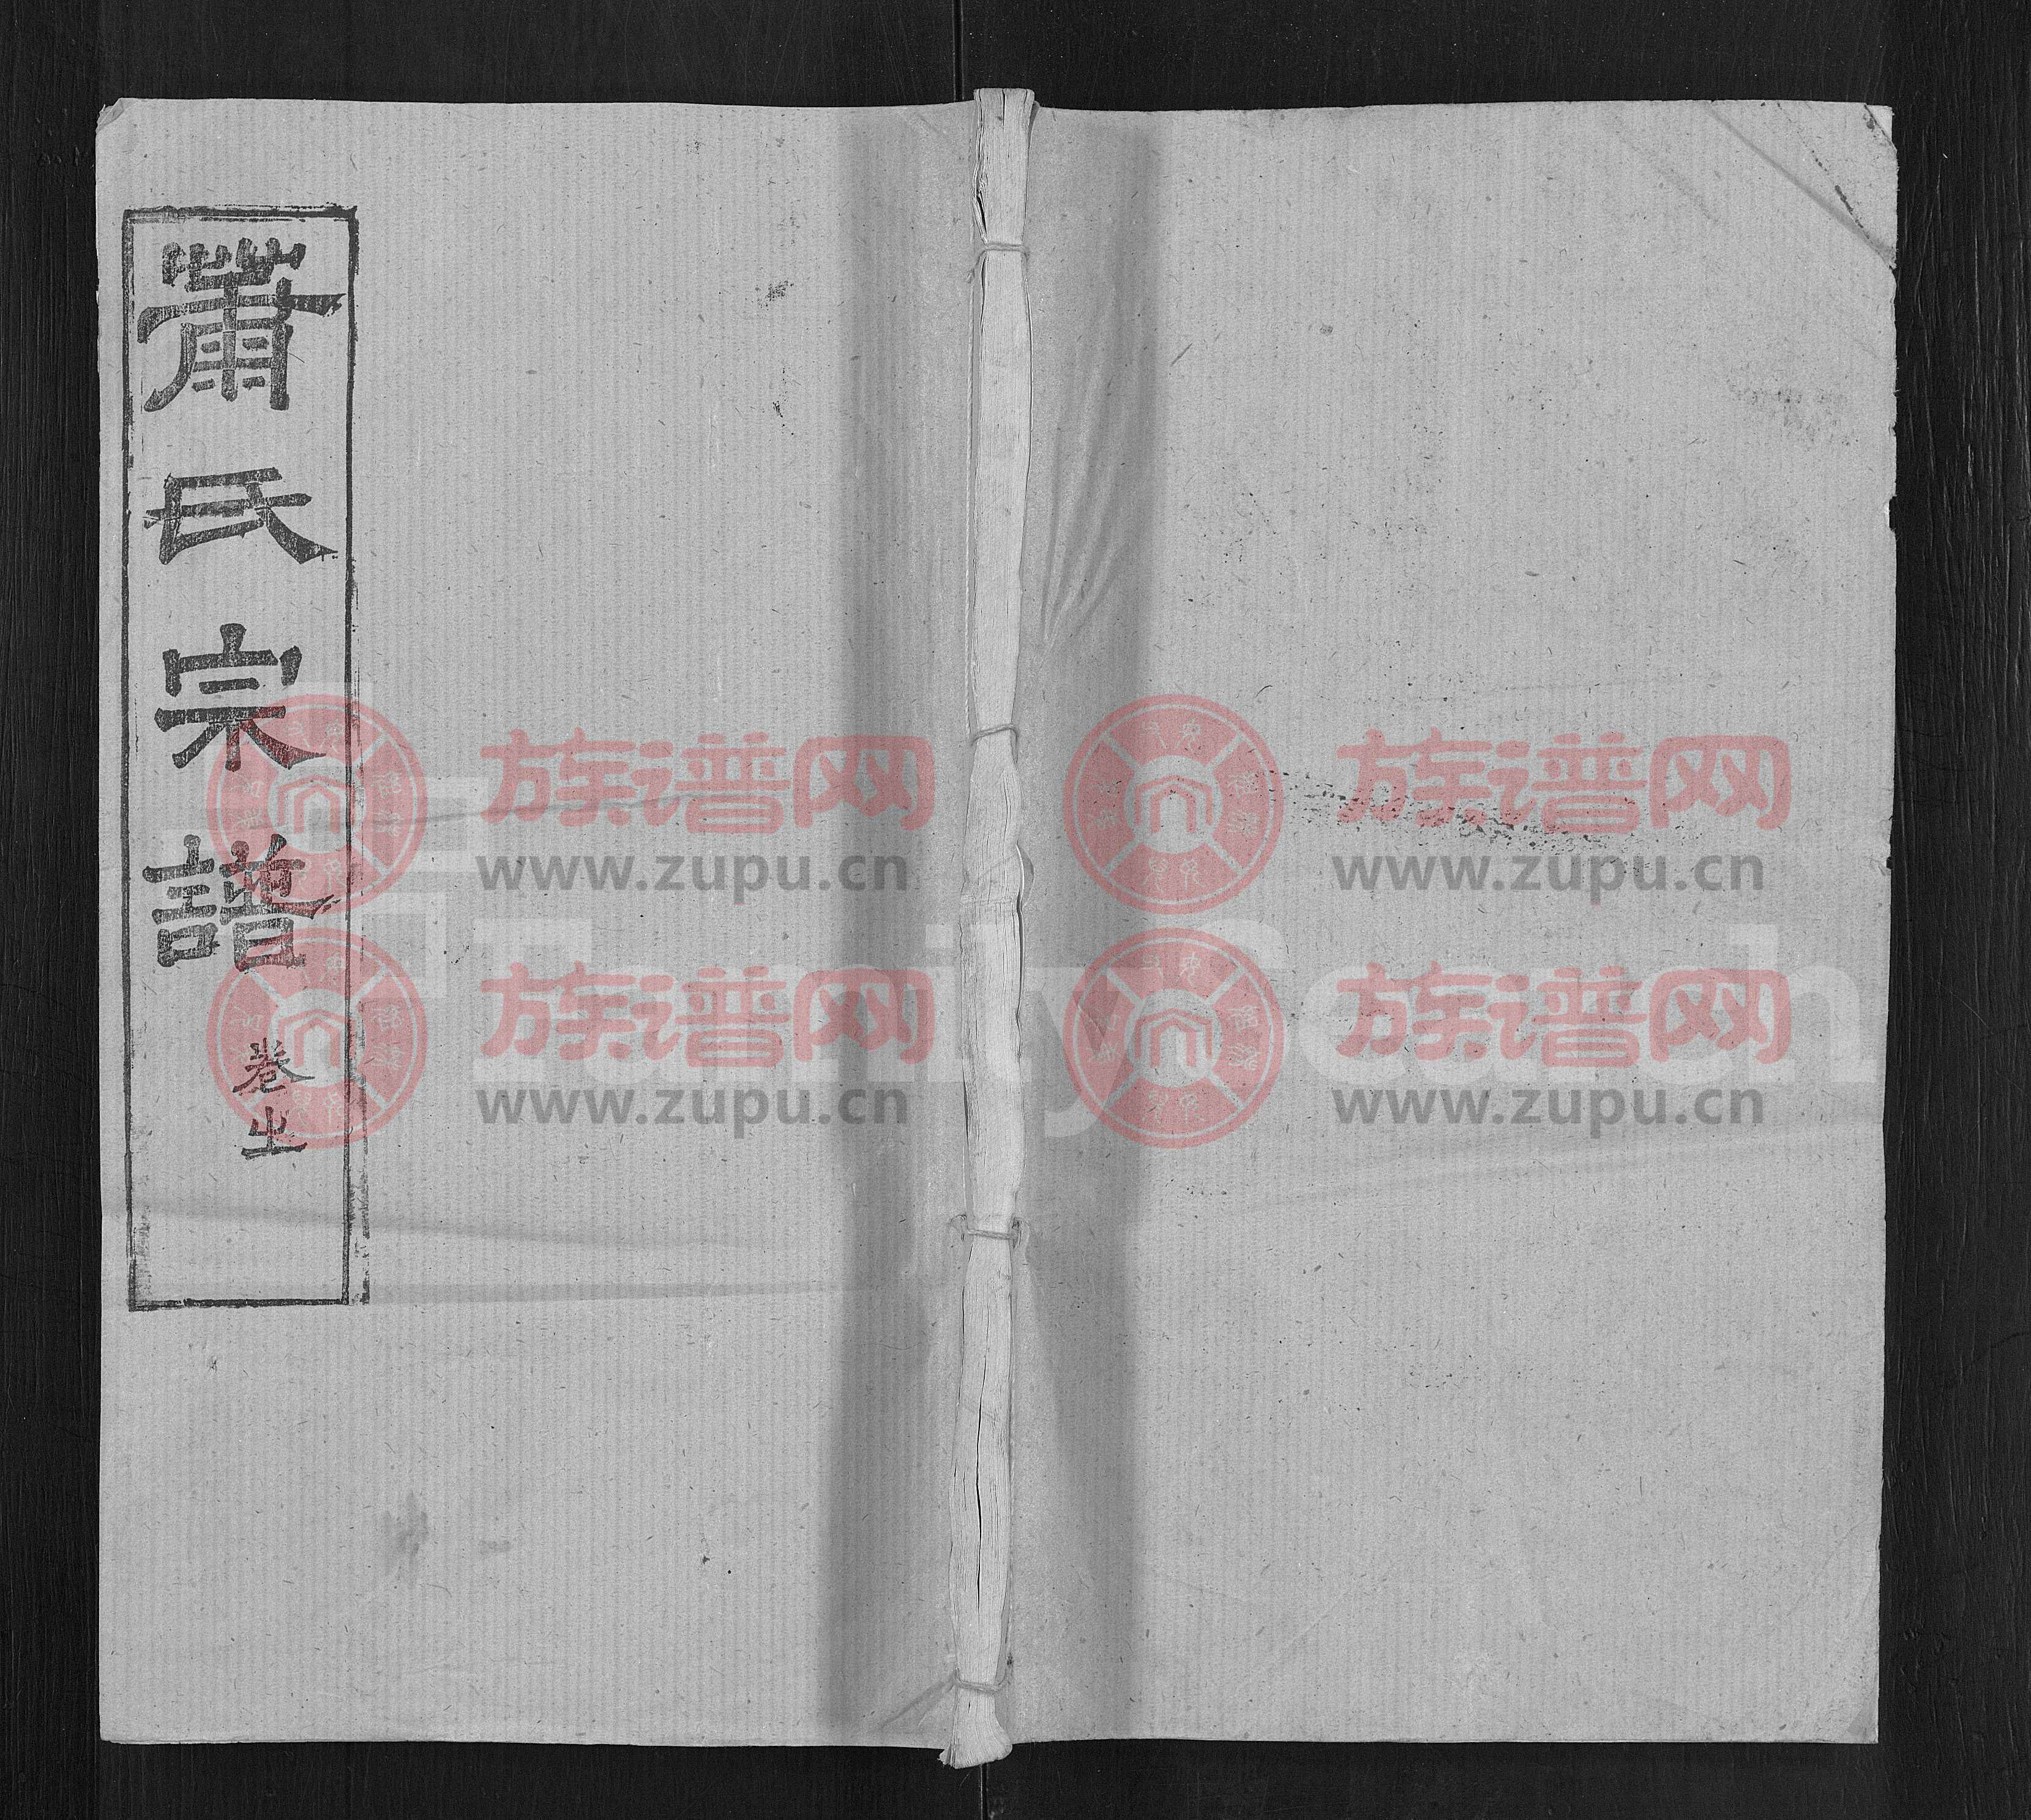 蕭氏宗譜
卷之
族谱网
www.zupu.cn
族谱网
www.zupu.cn
FamilySearch
族谱网
www.zupu.cn
族谱网
www.zupu.cn